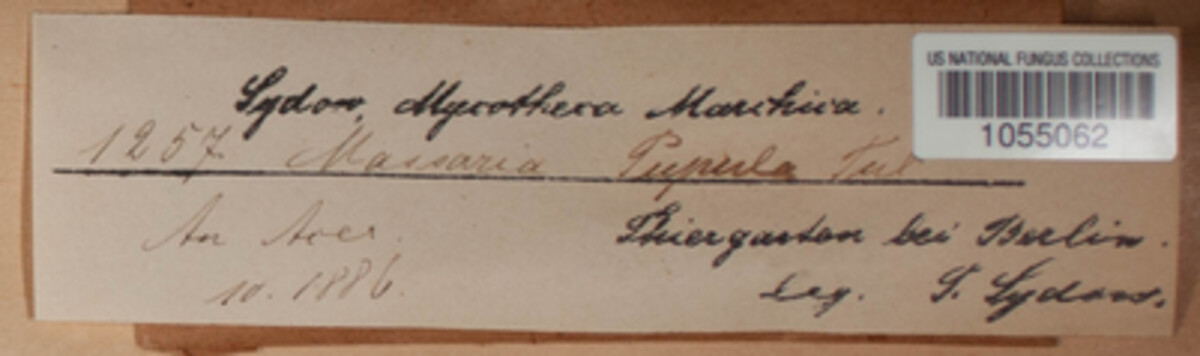 US NATIONAL FUNGUS COLLECTIONS
1055062
Sydow, Mycotheca Marchica.
1257 Massaria Pupula Tul
An Acer.
10. 1886.
Thiergarten bei Berlin.
Leg. P. Sydow.